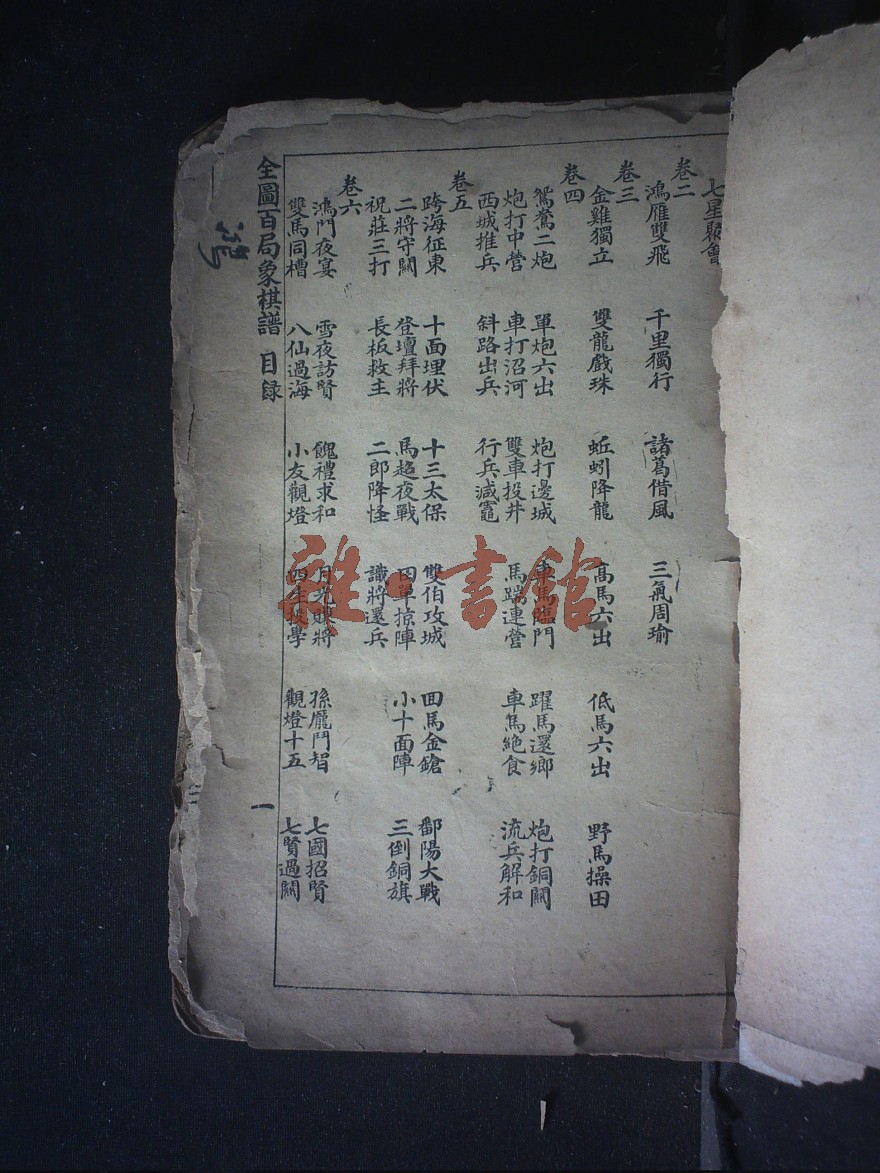 七星聚會
卷二
鴻雁雙飛 千里獨行 諸葛借風 三氣周瑜
卷三
金雞獨立 雙龍戲珠 蚯蚓降龍 高馬六出 低馬六出 野馬操田
卷四
鴛鴦二炮 單炮六出 炮打邊城 車馬臨門 躍馬還鄉 炮打銅關
炮打中營 車打沼河 雙車投井 馬踏連營 車馬絶食 流兵解和
西城推兵 斜路出兵 行兵減竈
卷五
跨海征東 十面埋伏 十三太保 雙伯攻城 回馬金鎗 鄱陽大戰
二將守關 登壇拜將 馬超夜戰 田單掠陣 小十面陣 三倒銅旗
祝莊三打 長板救主 二郎降怪 識將還兵
卷六
鴻門夜宴 雪夜訪賢 餽禮求和 月光 將 孫龐鬥智 七國招賢
雙馬同槽 八仙過海 小友觀燈 四 學 觀燈十五 七賢過關
全圖百局象棋譜 目録
一
雜·書館